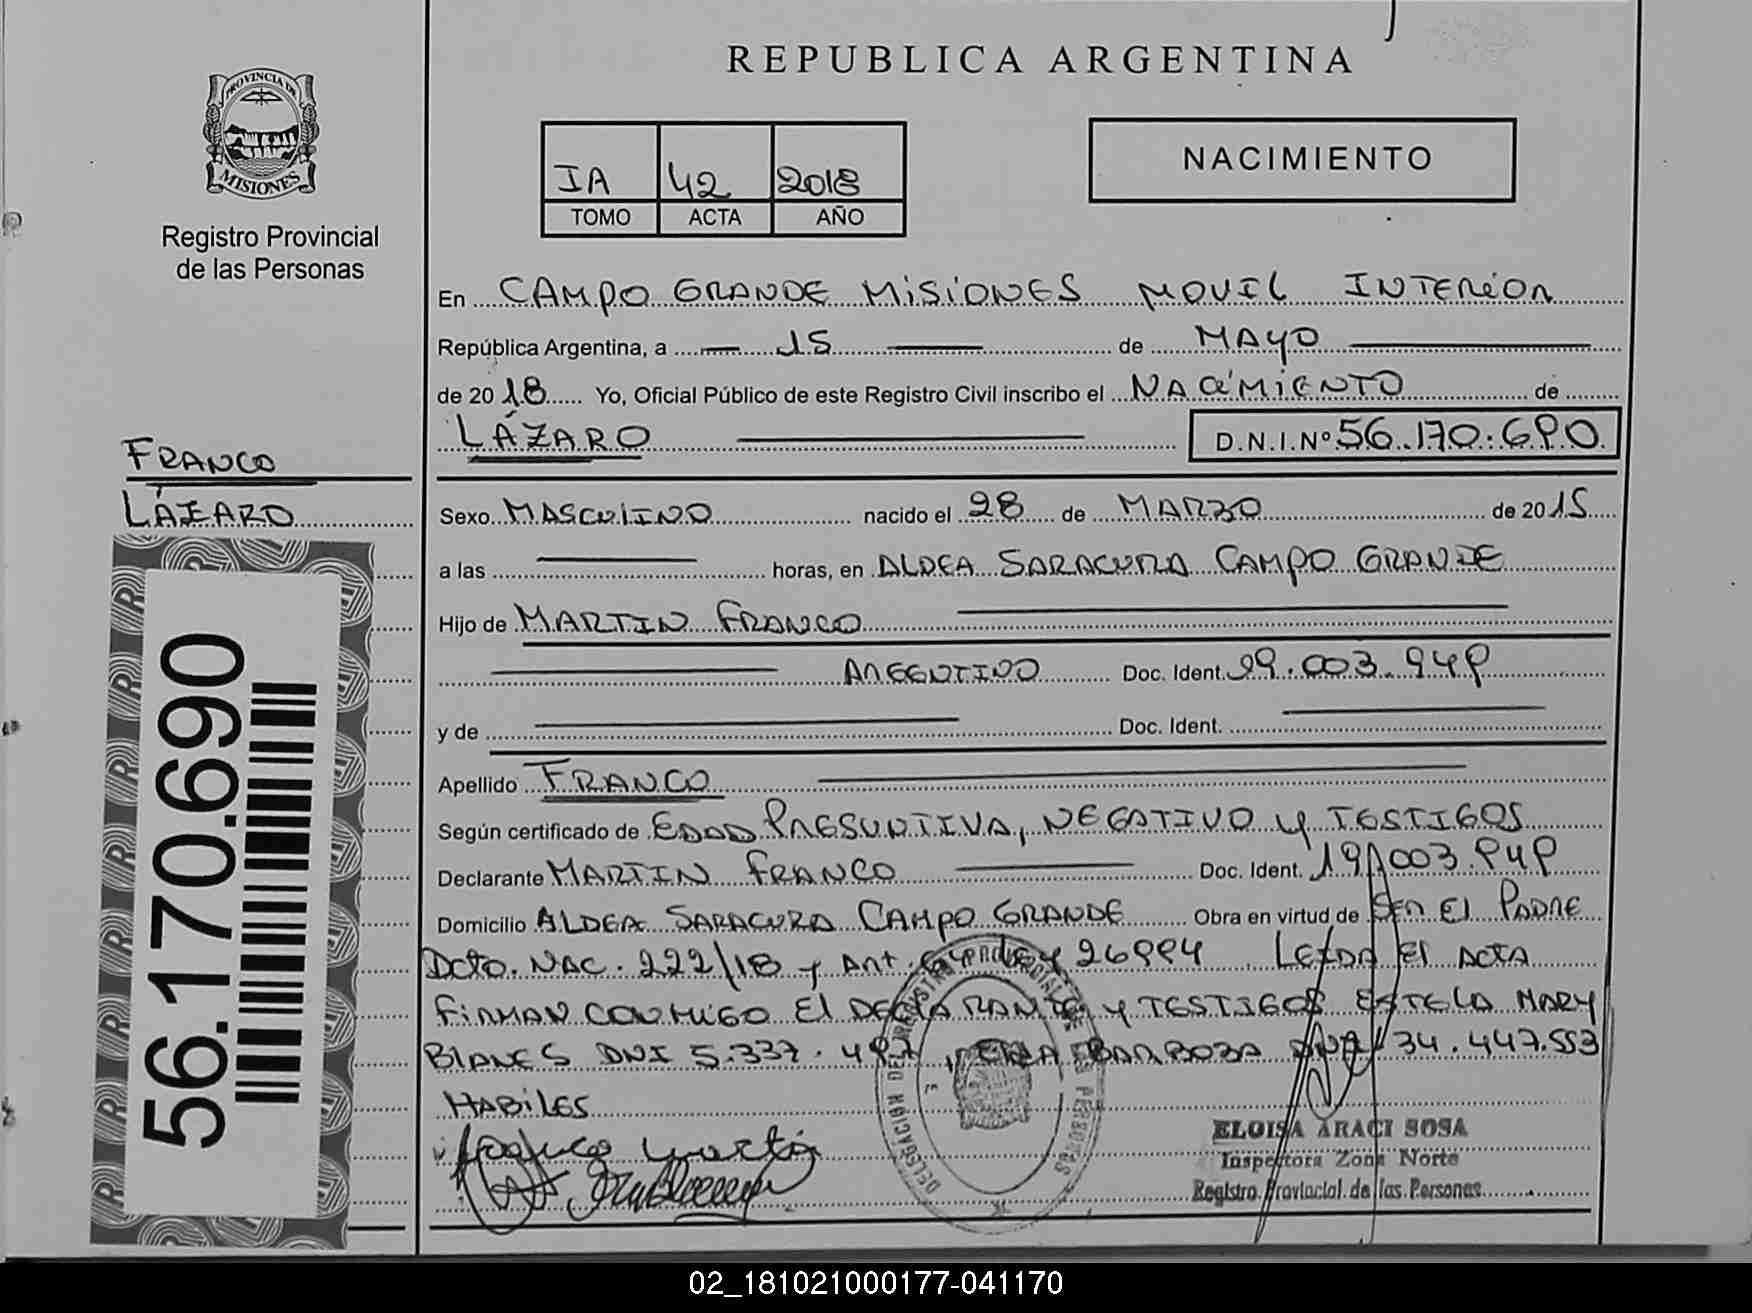 REPUBLICA ARGENTINA
PROVINCIA DE
MISIONES
Registro Provincial
de las Personas
IA 42 2018
TOMO ACTA AÑO
NACIMIENTO
En CAMPO GRANDE MISIONES MOVIL INTERIOR
República Argentina, a 15 de MAYO
de 2018 Yo, Oficial Público de este Registro Civil inscribo el NACIMIENTO de
LÁZARO D.N.I.Nº 56.170.690
FRANCO
LÁZARO
Sexo MASCULINO nacido el 28 de MARZO de 2015
a las horas, en ALDEA SARACURA CAMPO GRANDE
Hijo de MARTIN FRANCO
ARGENTINO Doc. Ident. 19.003.949
y de Doc. Ident.
Apellido FRANCO
Según certificado de EDAD PRESUNTIVA, NEGATIVO y TESTIGOS
Declarante MARTIN FRANCO Doc. Ident. 19.003.949
Domicilio ALDEA SARACURA CAMPO GRANDE Obra en virtud de SER El PADRE
Dcto. NAC. 222/18 y Art. Ley 26994 LEIDA El ACTA
FIRMAN CONMIGO El DECLARANTE y TESTIGOS ESTELA MARY
BLANES DNI 5.337.487, BARBOZA DNI 34.447.553
HABILES
56.170.690
DELEGACIÓN DEL REGISTRO PROVINCIAL DE LAS PERSONAS
ELOISA ARACI SOSA
Inspectora Zona Norte
Registro Provincial de las Personas
02_181021000177-041170